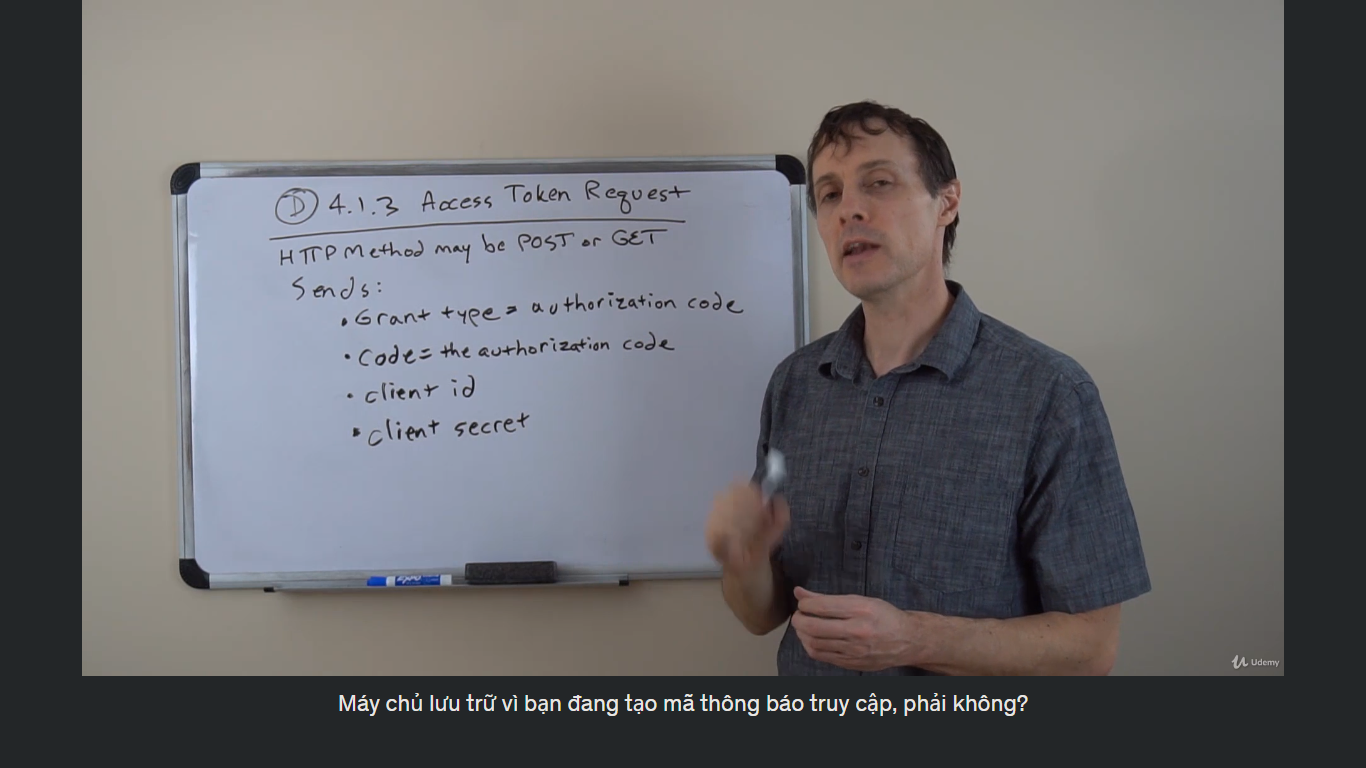 Ⓓ 4.1.3 Access Token Request
HTTP Method may be POST or GET
Sends:
• Grant type = authorization code
• Code = the authorization code
• client id
• client secret
EXPO
Udemy
Máy chủ lưu trữ vì bạn đang tạo mã thông báo truy cập, phải không?